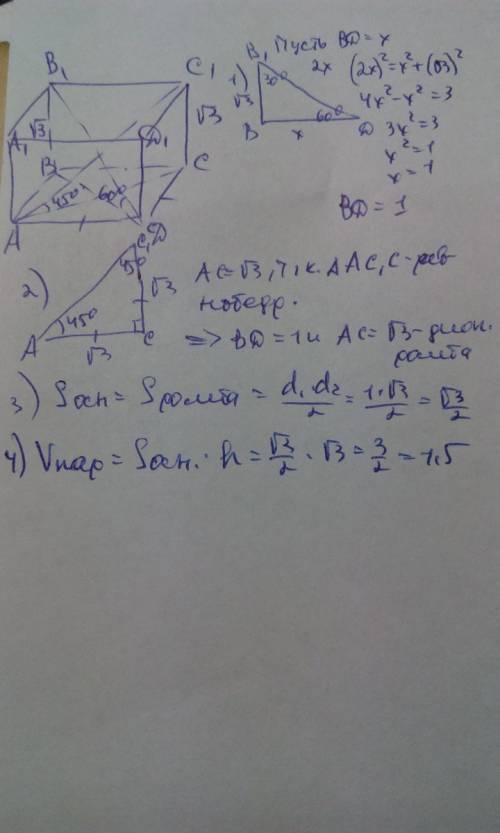 B₁
C₁
√3
A₁
D₁
√3
B
C
45°
60°
A
D
1)
B₁
Пусть BD = x
30°
√3
2x
60°
B
x
D
(2x)² = x² + (√3)²
4x² - x² = 3
3x² = 3
x² = 1
x = 1
BD = 1
2)
C₁
45°
√3
A
45°
√3
C
AC = √3, т.к. △ACC₁ - рав
нобедр.
=> BD = 1 и AC = √3 - диаг.
ромба
3) Sосн = Sромба = d₁d₂/2 = 1·√3/2 = √3/2
4) Vпар = Sосн. · h = √3/2 · √3 = 3/2 = 1,5